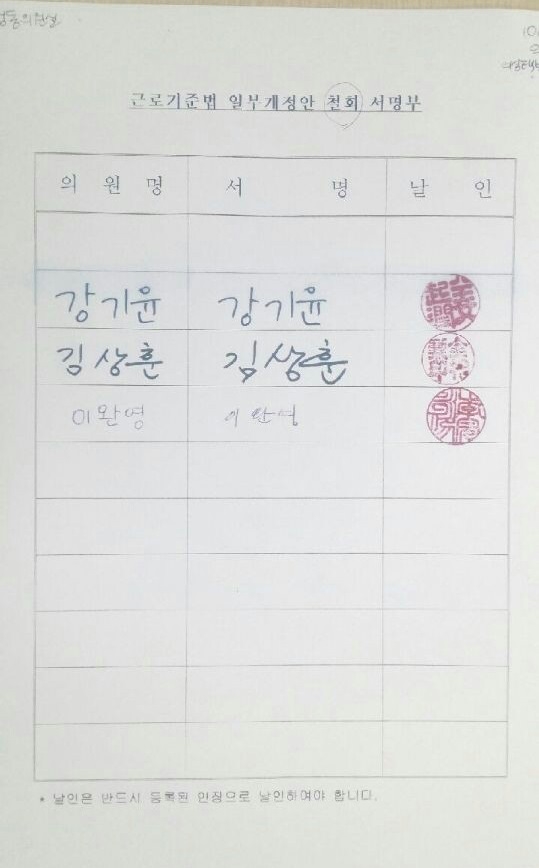 근로기준법 일부개정안 철회 서명부
의 원 명 서 명 날 인
강기윤 강기윤
김상훈 김상훈
이완영 이완영
* 날인은 반드시 등록된 인장으로 날인하여야 합니다.